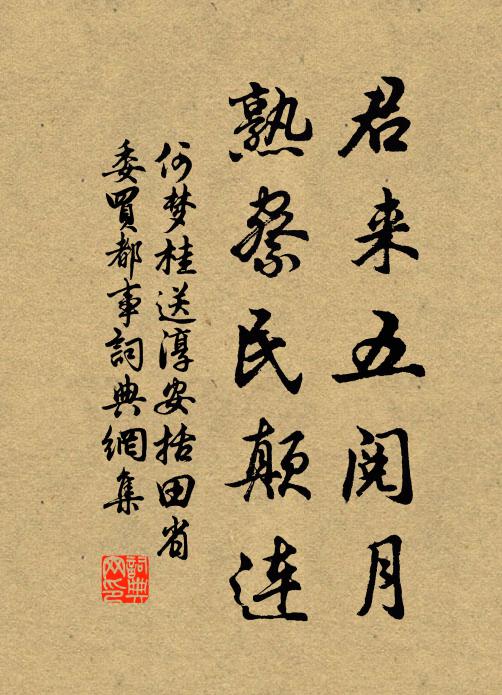 君来五阅月
熟察民颠连
何梦桂送淳安括田省
委買都事詞典網集
詞典网印